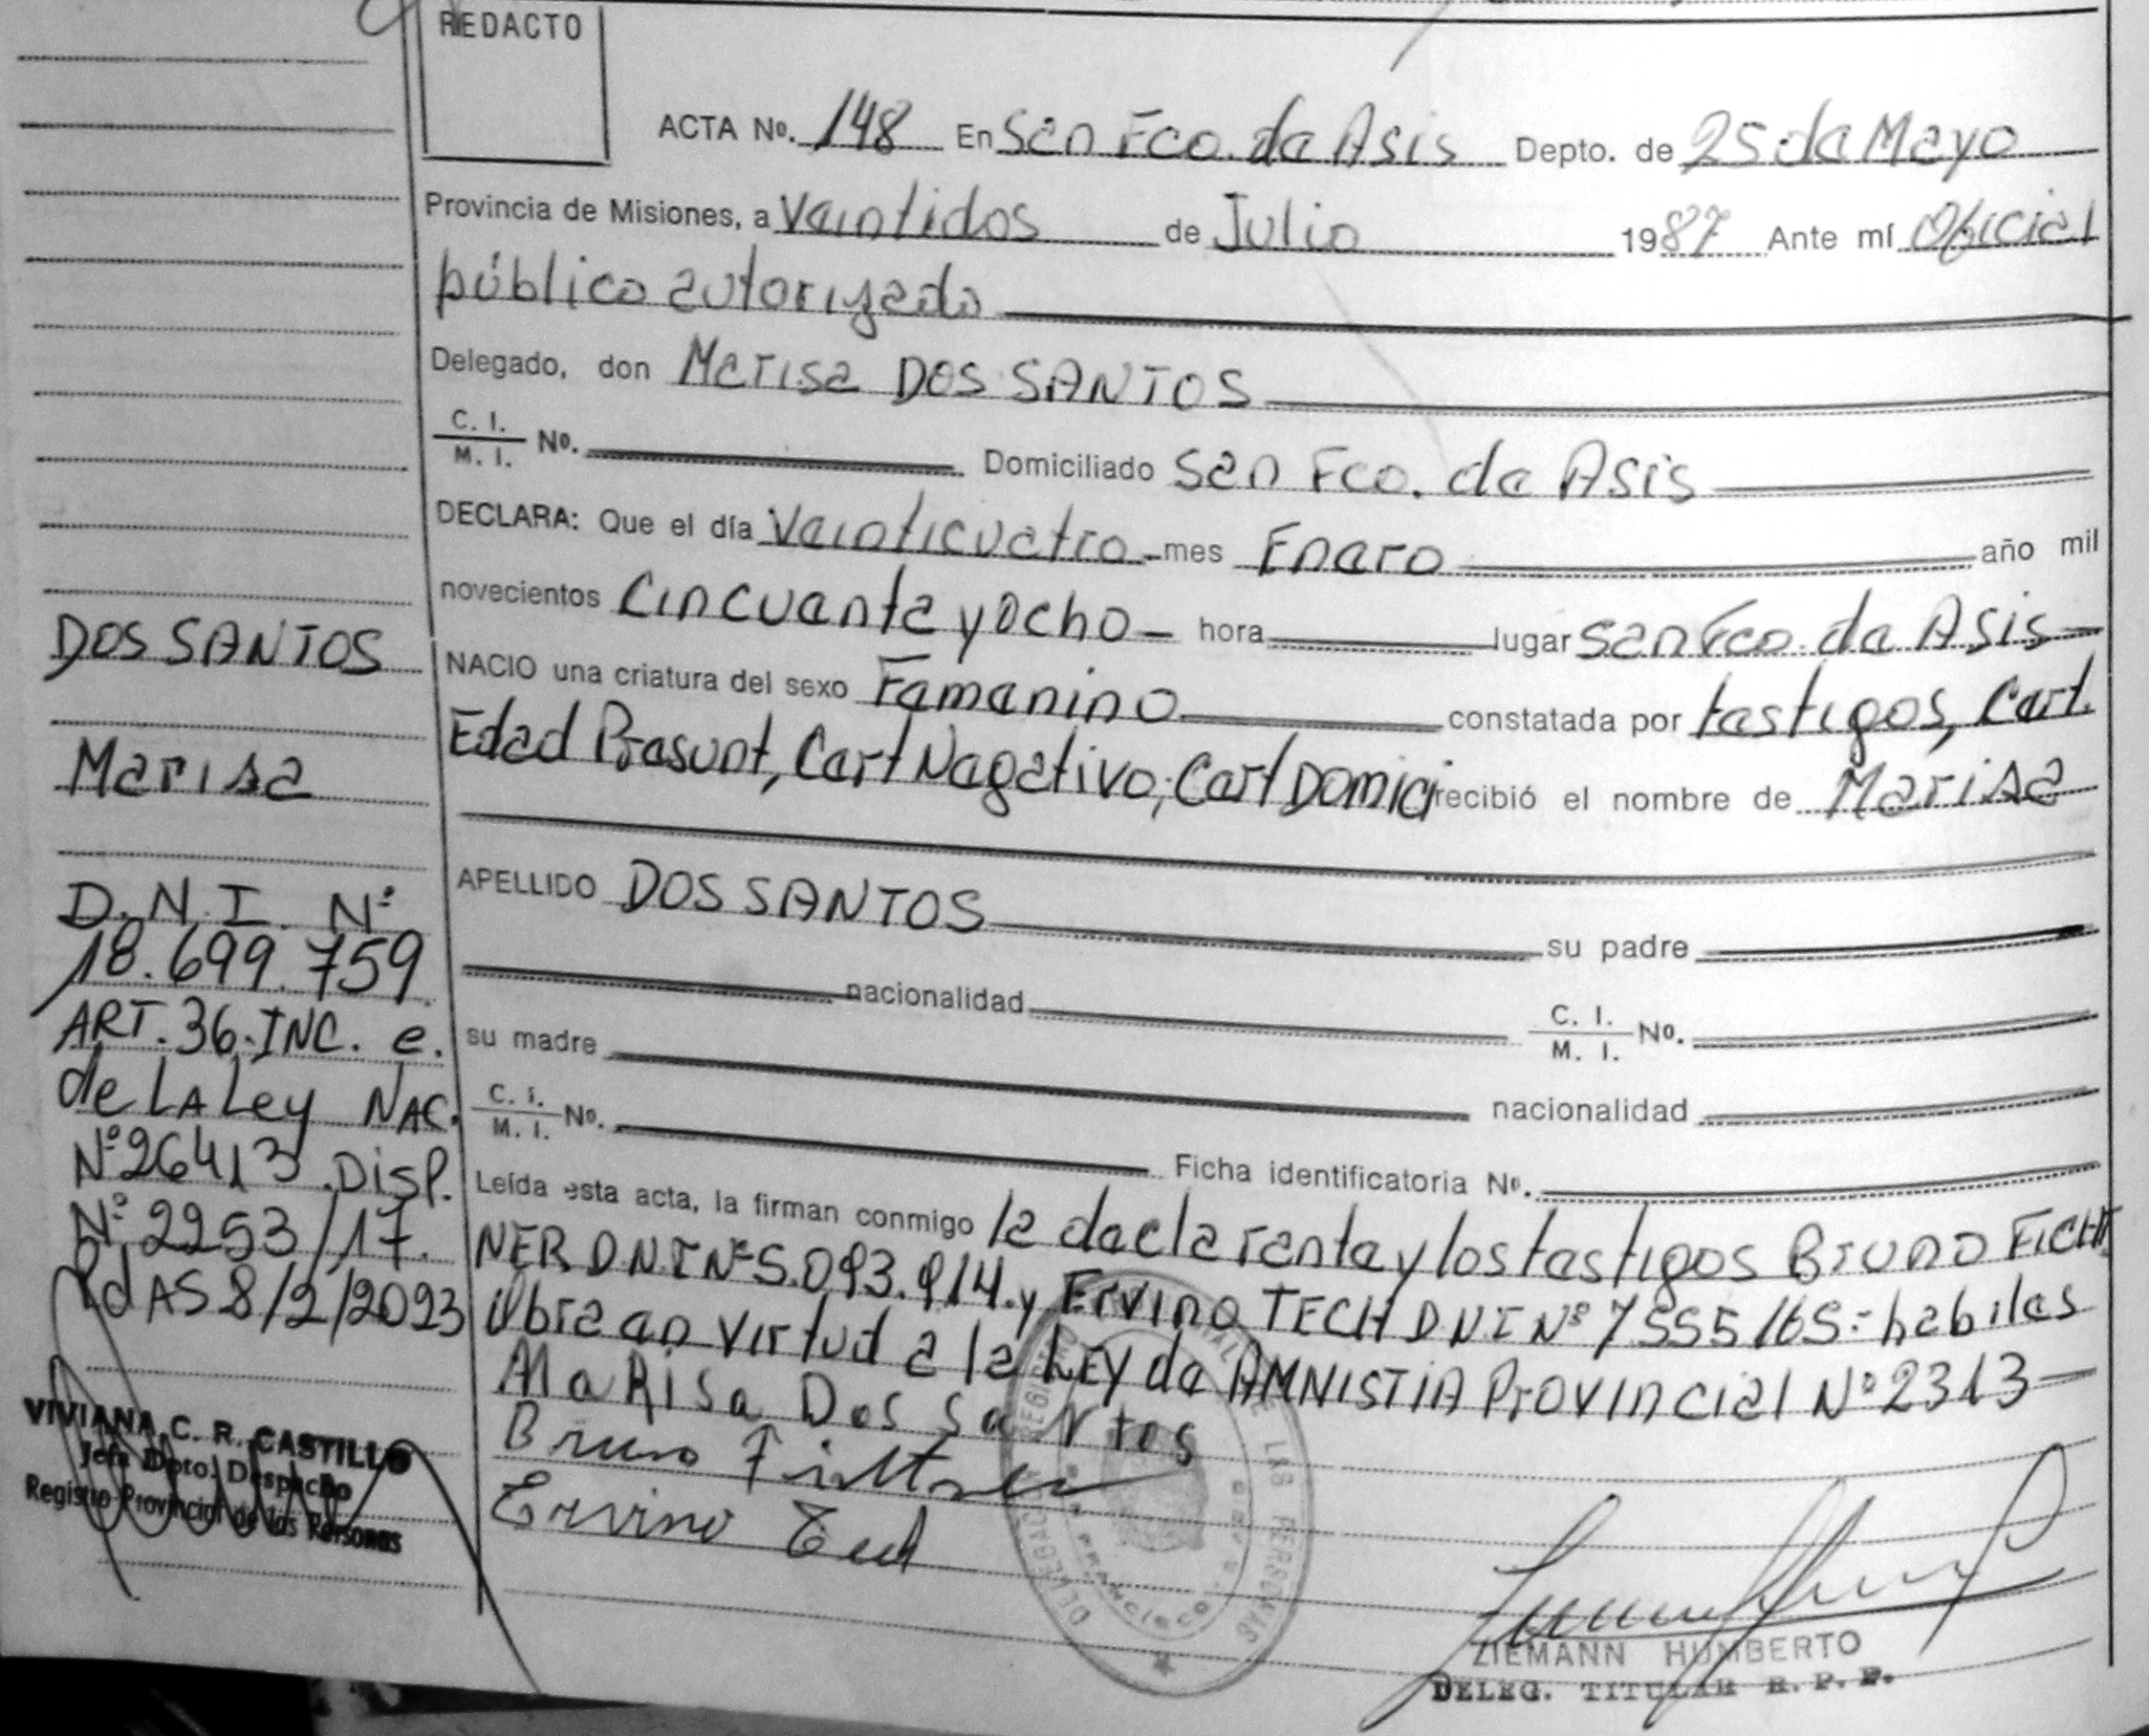 REDACTO
ACTA Nº. 148 En San Fco. de Asis Depto. de 25 de Mayo
Provincia de Misiones, a Veintidos de Julio 1987 Ante mí Oficial
público autorizado
Delegado, don Marisa DOS SANTOS
C. I. / M. I. Nº. Domiciliado San Fco. de Asis
DECLARA: Que el día Veinticuatro mes Enero año mil
novecientos Cincuenta y Ocho hora lugar San Fco. de Asis
NACIO una criatura del sexo Femenino constatada por testigos, Cert.
Edad Presunt, Cert Negativo, Cert Domici recibió el nombre de Marisa
APELLIDO DOS SANTOS su padre
nacionalidad C. I. / M. I. Nº.
su madre nacionalidad
C. I. / M. I. Nº. Ficha identificatoria Nº.
Leída esta acta, la firman conmigo la declarente y los testigos Bruno FICHT
NER DNI Nº 5.093.914. y Ervino TECH DNI Nº 7555165: habiles
Obra en virtud a la LEY de AMNISTIA Provincial Nº 2313
MaRisa Dos SaNtos
Bruno Fichtner
Ervino Tech
DELEGACION REGISTRO PROVINCIAL DE LAS PERSONAS
ZIEMANN HUMBERTO
DELEG. TITULAR R. P. P.
DOS SANTOS
Marisa
D.N.I. Nº
18.699.759
ART. 36. INC. e.
de LA Ley NAC.
Nº 26413 . DISP.
Nº 2253/17.
PdAS 8/2/2023
VIVIANA C. R. CASTILLO
Jefa Dpto. Despacho
Registro Provincial de las Personas